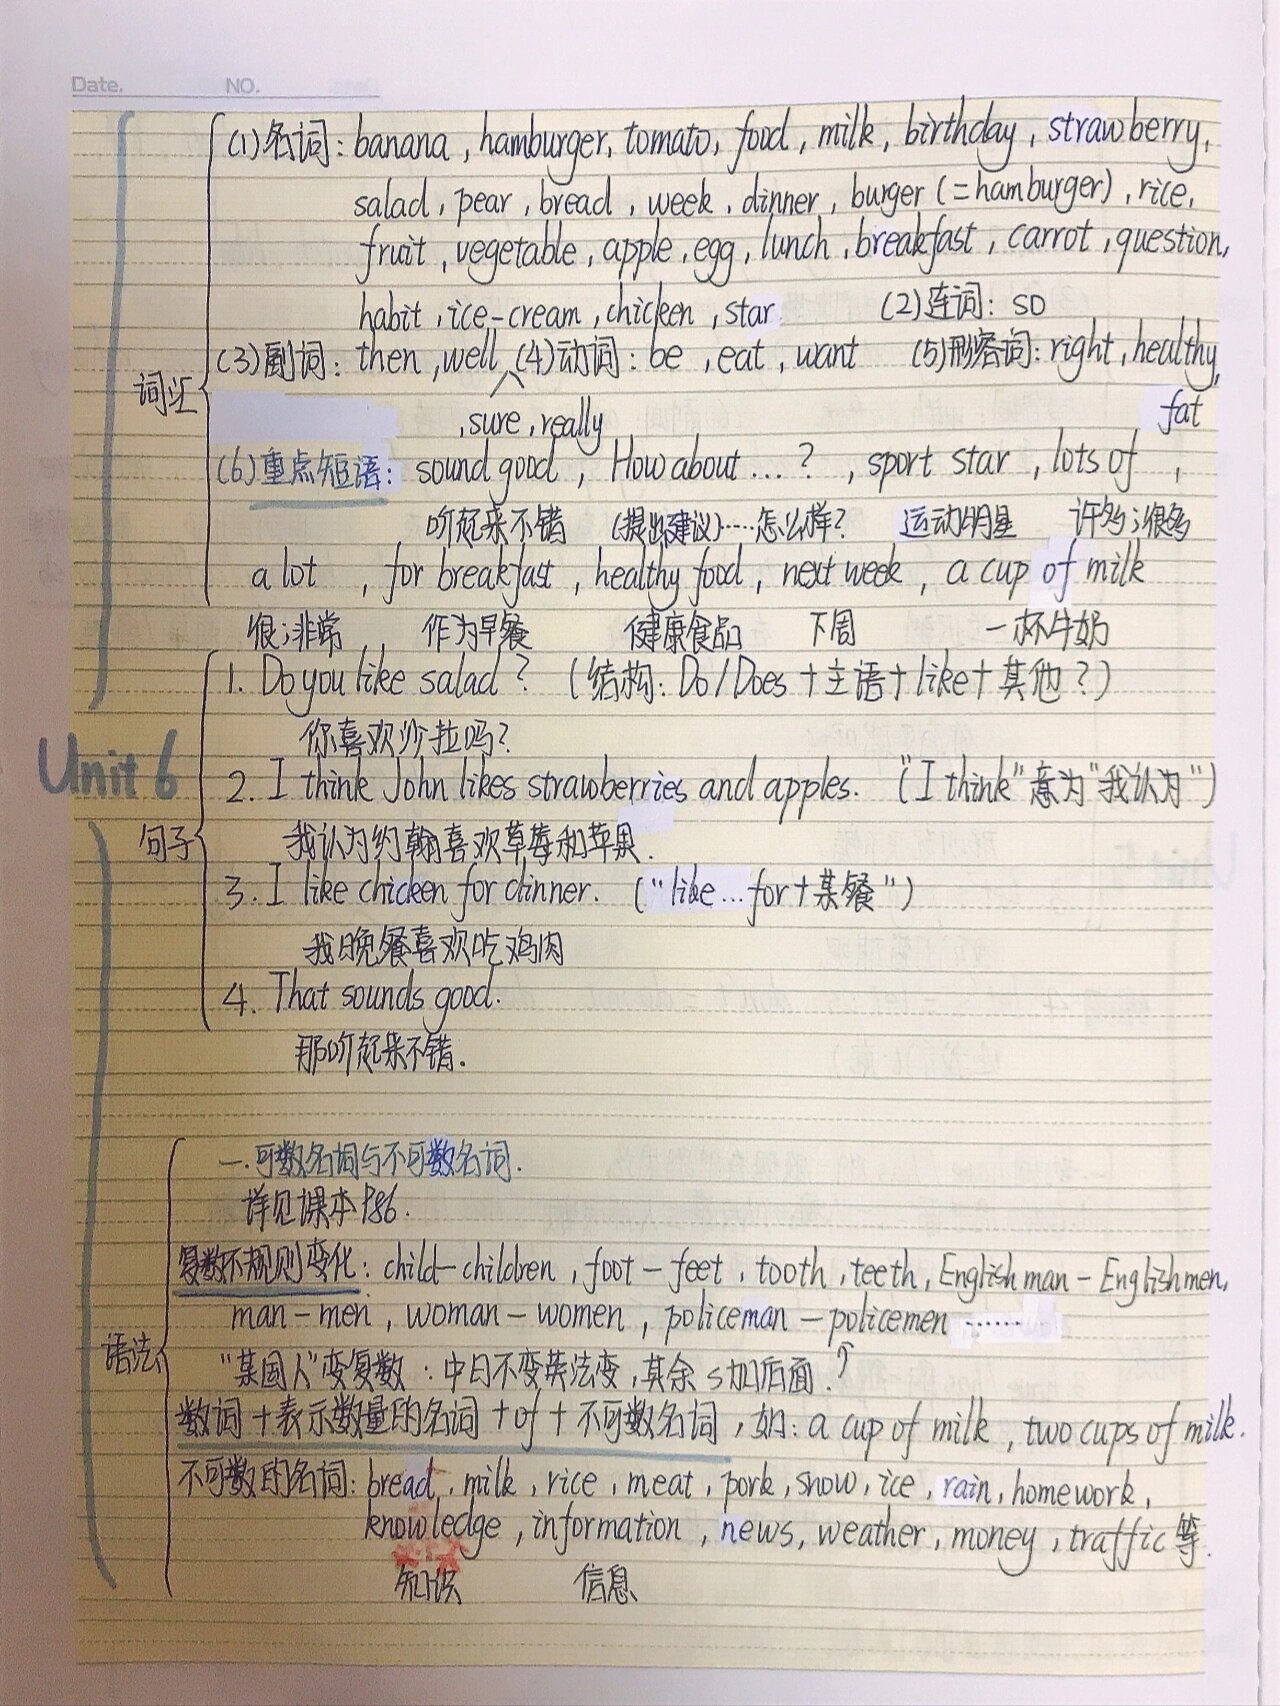 Date. NO.
(1)名词: banana, hamburger, tomato, food, milk, birthday, strawberry,
salad, pear, bread, week, dinner, burger (=hamburger), rice,
fruit, vegetable, apple, egg, lunch, breakfast, carrot, question,
habit, ice-cream, chicken, star (2)连词: so
(3)副词: then, well (4)动词: be, eat, want (5)形容词: right, healthy,
词汇
, sure, really fat
(6)重点短语: sound good, How about...?, sport star, lots of ,
听起来不错 (提出建议)……怎么样? 运动明星 许多;很多
a lot , for breakfast, healthy food, next week, a cup of milk
很;非常 作为早餐 健康食品 下周 一杯牛奶
1. Do you like salad? (结构: Do/Does+主语+like+其他?)
你喜欢沙拉吗?
Unit 6
2. I think John likes strawberries and apples. ("I think"意为"我认为")
句子
我认为约翰喜欢草莓和苹果.
3. I like chicken for dinner. ("like...for+某餐")
我晚餐喜欢吃鸡肉
4. That sounds good.
那听起来不错.
一.可数名词与不可数名词.
详见课本P86.
复数不规则变化: child-children, foot-feet, tooth, teeth, Englishman-Englishmen,
man-men, woman-women, policeman-policemen ……
语法
"某国人"变复数: 中日不变英法变,其余s加后面.↑
数词+表示数量的名词+of+不可数名词,如: a cup of milk, two cups of milk.
不可数的名词: bread, milk, rice, meat, pork, snow, ice, rain, homework,
knowledge, information, news, weather, money, traffic等.
知识 信息